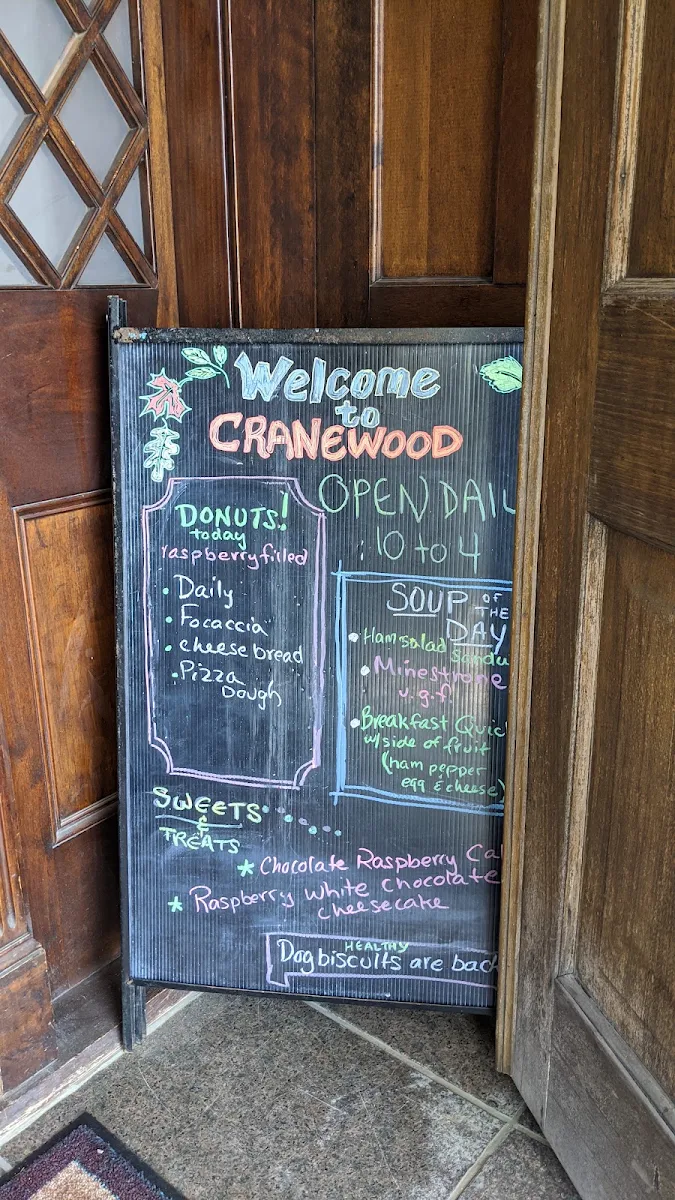 Welcome
to
CRANEWOOD
OPEN DAIL
10 to 4
DONUTS!
today
raspberry filled
• Daily
• Focaccia
• cheese bread
• Pizza
Dough
SOUP OF
THE
DAY
• Ham salad Sandw
• Minestrone
v.g.f.
• Breakfast Quic
w/ side of fruit
(ham pepper
egg & cheese)
SWEETS
&
TREATS
* Chocolate Raspberry Ca
* Raspberry White chocolate
cheesecake
HEALTHY
Dog biscuits are back